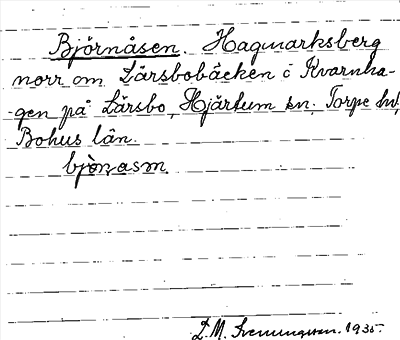 Björnåsen. Hagmarksberg
norr om Lärsbobäcken i Kvarnha-
-gen på Lärsbo, Hjärtum sn. Torpe hd,
Bohus län.
bjò̱ṇasm.
D. M. Svenungsson. 1935.